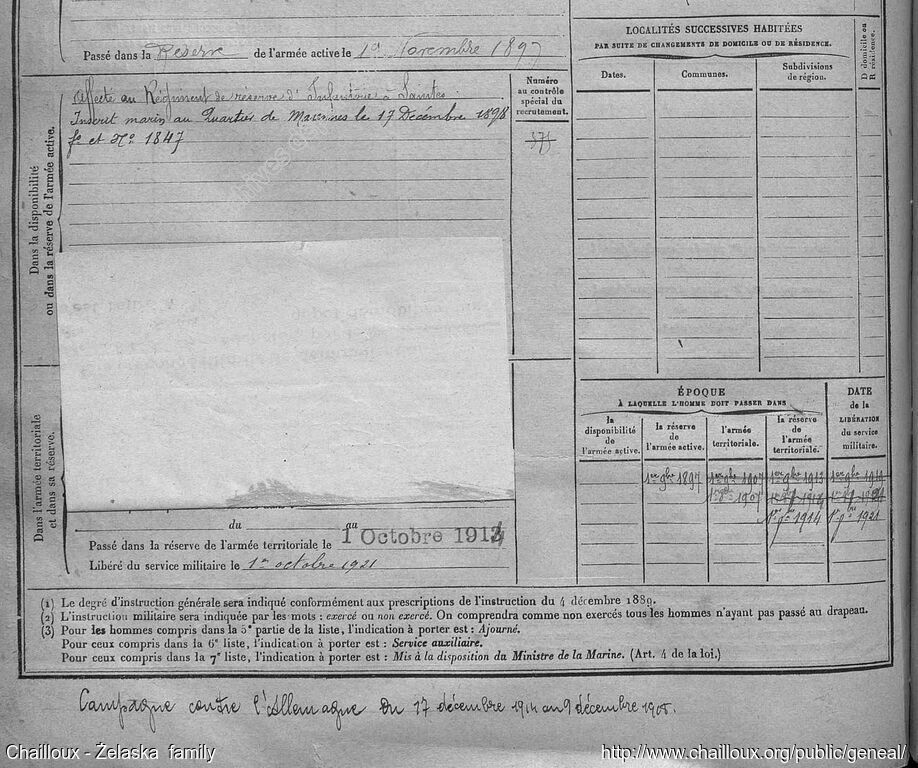 Passé dans la Réserve de l'armée active le 1er Novembre 1897
Dans la disponibilité
ou dans la réserve de l'armée active.
Affecté au Régiment de réserve d'Infanterie à Saintes.
Inscrit marin au Quartier de Marennes le 17 Décembre 1898
fo et No 1847
Numéro
au contrôle
spécial du
recrutement.
375
LOCALITÉS SUCCESSIVES HABITÉES
PAR SUITE DE CHANGEMENTS DE DOMICILE OU DE RÉSIDENCE.
Dates.
Communes.
Subdivisions
de région.
D domicile ou
R résidence.
ÉPOQUE
À LAQUELLE L'HOMME DOIT PASSER DANS
la
disponibilité
de
l'armée active.
la réserve
de
l'armée active.
l'armée
territoriale.
la réserve
de
l'armée
territoriale.
DATE
de la
LIBÉRATION
du service
militaire.
1er 9bre 1897 1er 9bre 1907 1er 9bre 1913 1er 9bre 1919
1er 8bre 1914 1er 8bre 1921
Dans l'armée territoriale
et dans sa réserve.
du au
Passé dans la réserve de l'armée territoriale le 1 Octobre 1914
Libéré du service militaire le 1er octobre 1921
(1) Le degré d'instruction générale sera indiqué conformément aux prescriptions de l'instruction du 4 décembre 1889.
(2) L'instruction militaire sera indiquée par les mots : exercé ou non exercé. On comprendra comme non exercés tous les hommes n'ayant pas passé au drapeau.
(3) Pour les hommes compris dans la 5e partie de la liste, l'indication à porter est : Ajourné.
Pour ceux compris dans la 6e liste, l'indication à porter est : Service auxiliaire.
Pour ceux compris dans la 7e liste, l'indication à porter est : Mis à la disposition du Ministre de la Marine. (Art. 4 de la loi.)
Campagne contre l'Allemagne du 17 décembre 1914 au 9 décembre 1915.
Chailloux - Żelaska family
http://www.chailloux.org/public/geneal/